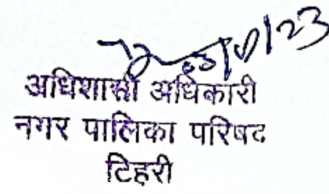 अधिशासी अधिकारी
नगर पालिका परिषद
टिहरी